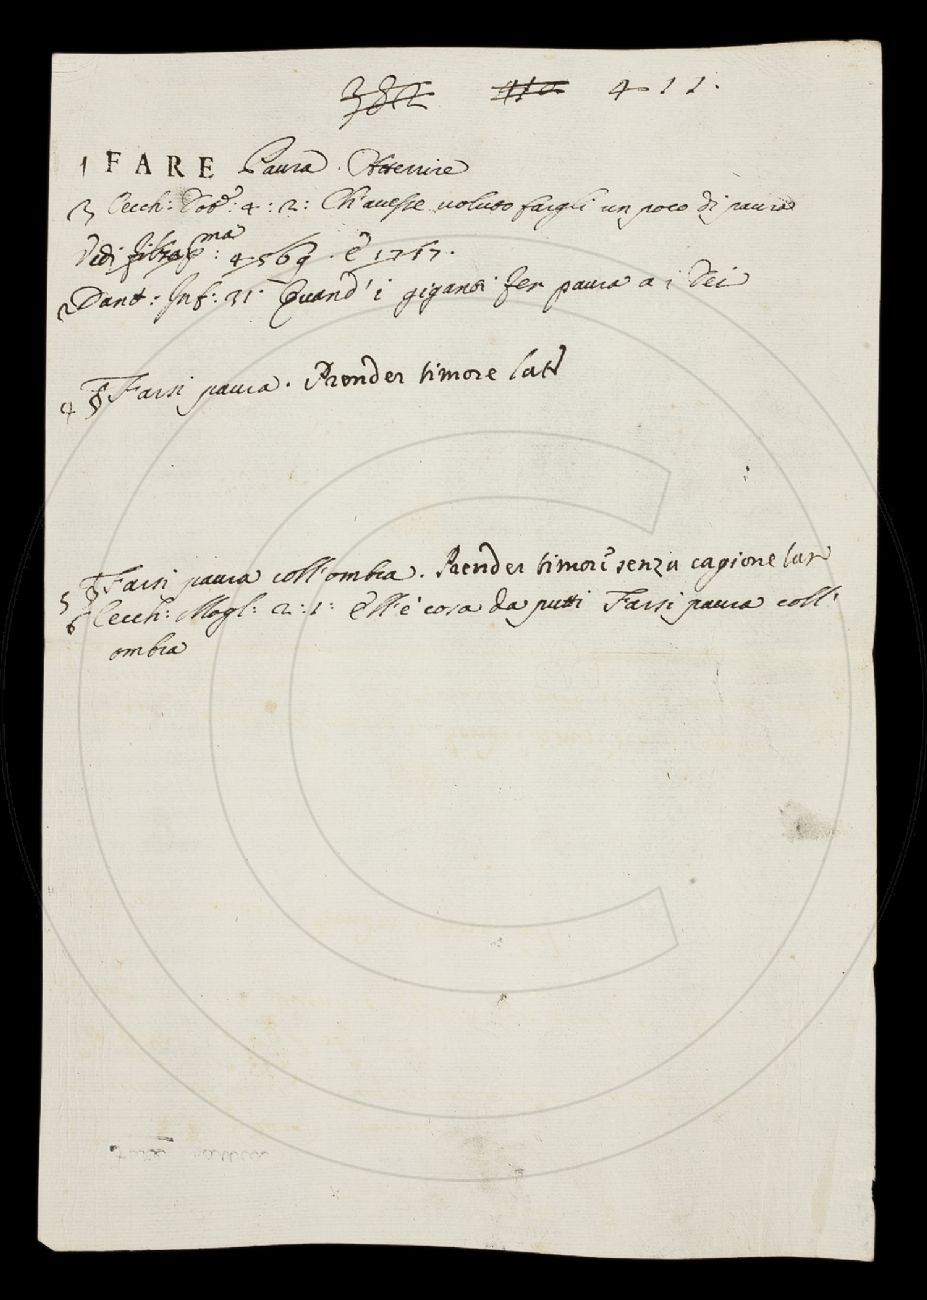 382 410 411.
1 FARE Paura. Atterrire
3 Cecch: Dot: 4: 2: Ch'avesse voluto fargli un poco di paura
Vedi filza pma: 4569. e 1767.
2 Dant: Inf: 31. Quand' i giganti fer paura a i Dei
4 § Farsi paura. Prender timore lat
5 § Farsi paura coll'ombra. Prender timore senza cagione lat
6 Cecch: Mogl: 2: 1: Ell'è cosa da putti Farsi paura coll'
ombra